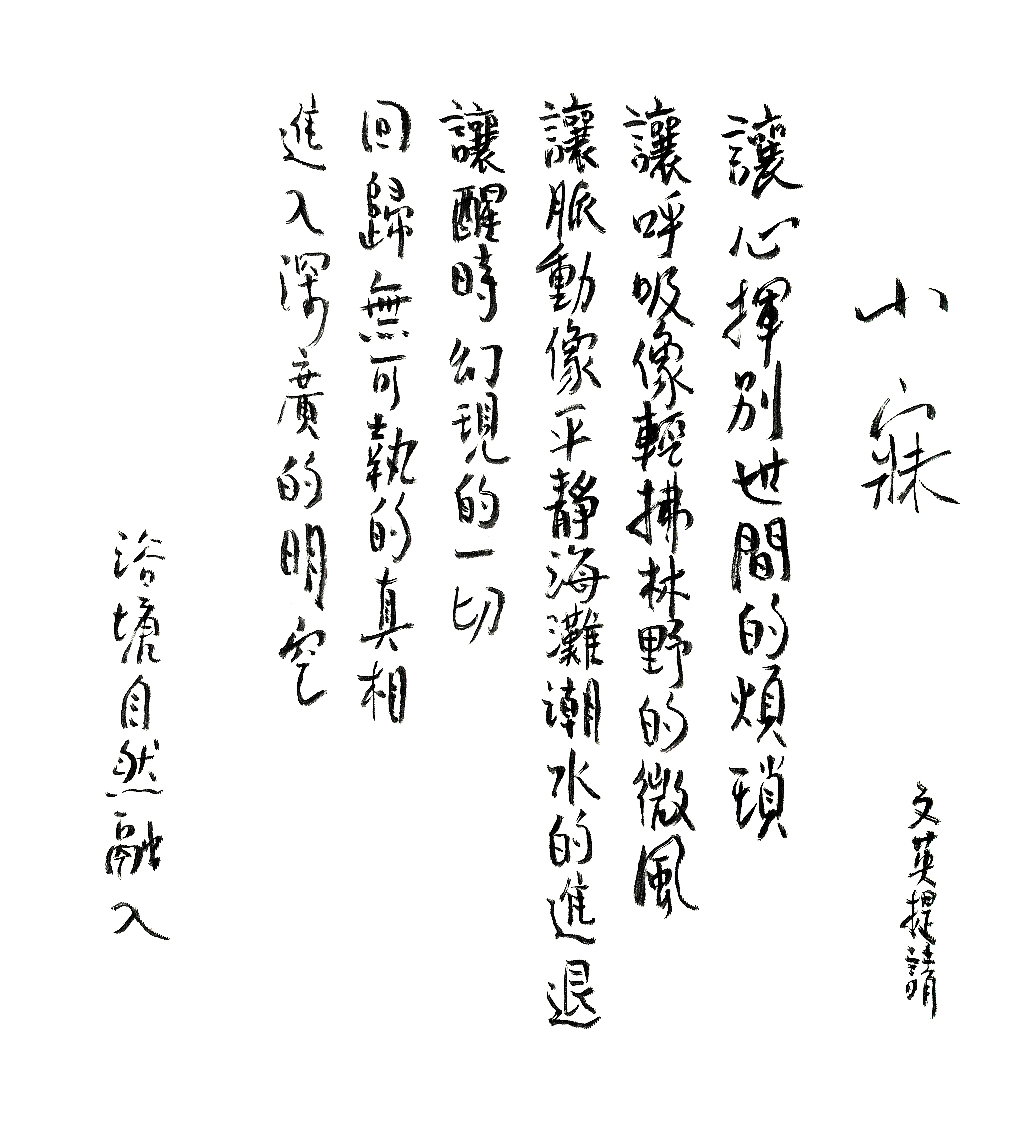 小寐
文英提請
讓心揮別世間的煩瑣
讓呼吸像輕拂林野的微風
讓脈動像平靜海灘潮水的進退
讓醒時幻現的一切
回歸無可執的真相
進入深廣的明空
浴塘自然融入